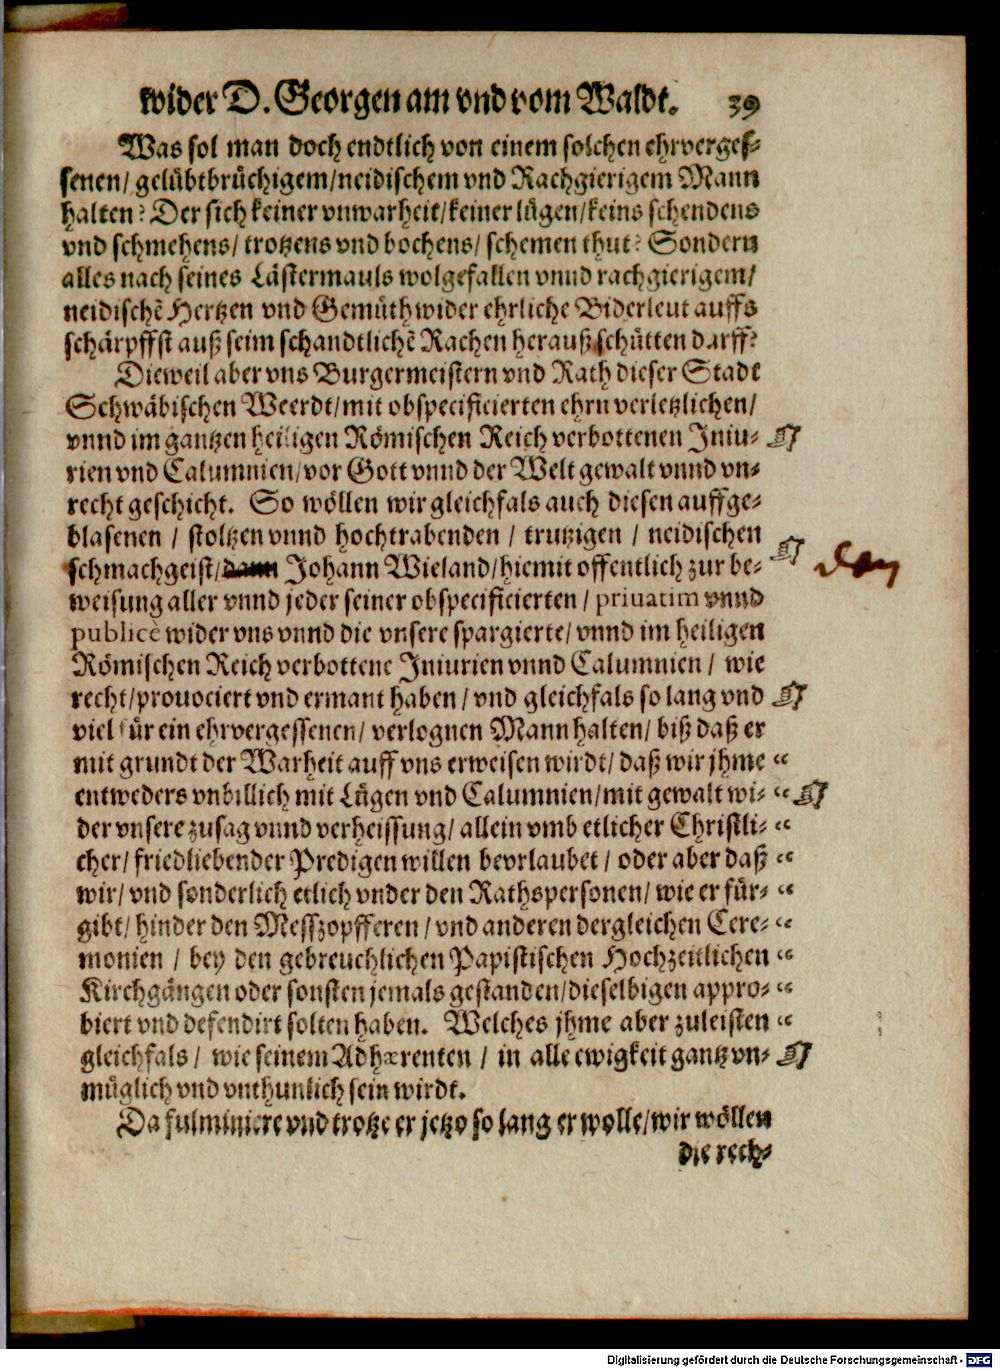 wider D. Georgen am vnd vom Waldt. 39
Was sol man doch endtlich von einem solchen ehrverges-
senen/ gelübtbrüchigem/neidischem vnd Rachgierigem Mann
halten? Der sich keiner vnwarheit/keiner lügen/keins schendens
vnd schmehens/ trotzens vnd bochens/ schemen thut? Sondern
alles nach seines Lästermauls wolgefallen vnnd rachgierigem/
neidischē Hertzen vnd Gemüth wider ehrliche Biderleut auffs
schärpffst auß seim schandtlichē Rachen herauß schütten darff?
Dieweil aber vns Burgermeistern vnd Rath dieser Stadt
Schwäbischen Weerdt/mit obspecificierten ehrnverletzlichen/
vnnd im gantzen heiligen Römischen Reich verbottenen Iniu-
rien vnd Calumnien/vor Gott vnnd der Welt gewalt vnnd vn-
recht geschicht. So wöllen wir gleichfals auch diesen auffge-
blasenen / stoltzen vnnd hochtrabenden / trutzigen / neidischen
schmachgeist/dann Johann Wieland/hiemit offentlich zur be- den
weisung aller vnnd jeder seiner obspecificierten / priuatim vnnd
publicè wider vns vnnd die vnsere spargierte/ vnnd im heiligen
Römischen Reich verbottene Iniurien vnnd Calumnien / wie
recht/prouociert vnd ermant haben / vnd gleichfals so lang vnd
viel für ein ehrvergessenen/ verlognen Mann halten/ biß daß er
mit grundt der Warheit auff vns erweisen wirdt/ daß wir jhme “
entweders vnbillich mit Lügen vnd Calumnien/mit gewalt wi- “
der vnsere zusag vnnd verheissung/ allein vmb etlicher Christli- “
cher/ friedliebender Predigen willen bevrlaubet / oder aber daß “
wir/ vnd sonderlich etlich vnder den Rathspersonen/ wie er für- “
gibt/ hinder den Messzopfferen / vnd anderen dergleichen Cere- “
monien / bey den gebreuchlichen Papistischen Hochzeitlichen “
Kirchgängen oder sonsten jemals gestanden/dieselbigen appro- “
biert vnd defendirt solten haben. Welches jhme aber zuleisten “
gleichfals / wie seinem Adhærenten / in alle ewigkeit gantz vn-
müglich vnd vnthunlich sein wirdt.
Da fulminiere vnd trotze er jetzo so lang er wolle/wir wöllen
die rech-
Digitalisierung gefördert durch die Deutsche Forschungsgemeinschaft - DFG